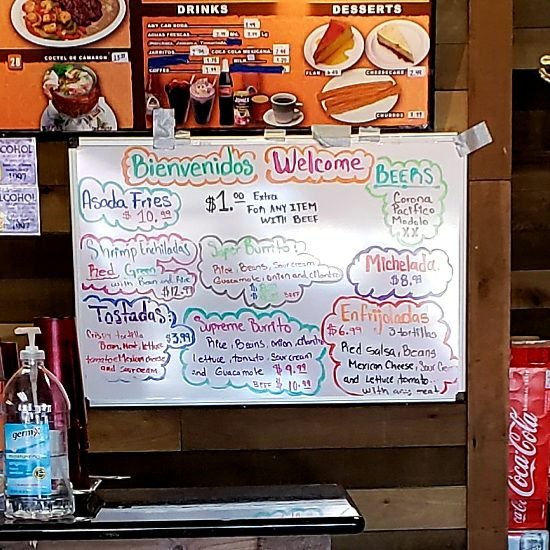 DRINKS
DESSERTS
ANY CAN SODA
AGUAS FRESCAS
JARRITOS
COCA COLA MEXICANA
COFFEE
FLAN
CHEESECAKE
CHURROS
28 COCTEL DE CAMARON
COHOL!
1997
LCOHOL!
1997
Bienvenidos Welcome
BEERS
Corona
Pacifico
Modelo
XX
Asada Fries
$ 10.99
$1.00 Extra
FOR ANY ITEM
WITH BEEF
Shrimp Enchiladas
Red Green
with Bean and Rice
$12.99
Super Burrito:
Rice, Beans, Sour cream
Guacamole, onion and cilantro
BEEF
Michelada
$8.99
Tostadas:)
$3.99
Crispy tortilla
Bean, Meat, lettuce
tomatoe Mexican cheese
and sour cream
Supreme Burrito
Rice, Beans, onion, cilantro
lettuce, tomato, sour cream
and Guacamole $ 9.99
BEEF $ 10.99
Enfrijoladas
$6.99 3 tortillas
Red salsa, Beans
Mexican Cheese, Sour Cream
and lettuce tomato.
with any meat
germ-x
Coca-Cola